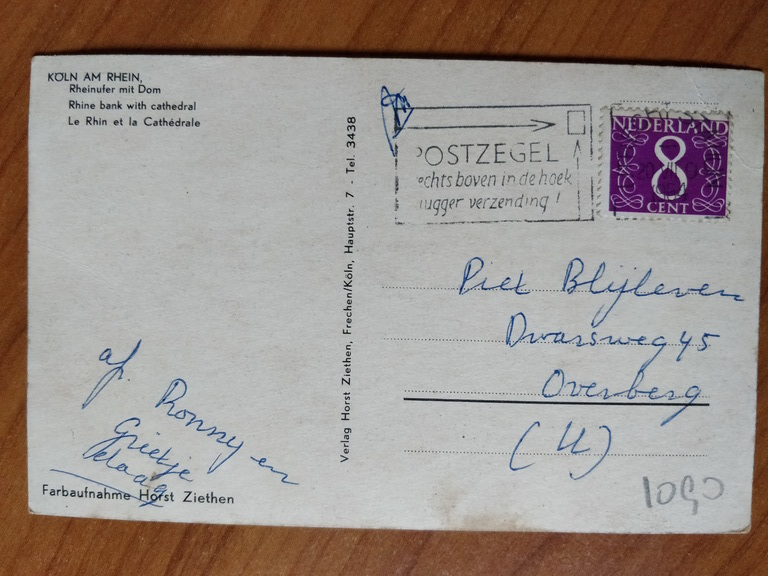 KÖLN AM RHEIN,
Rheinufer mit Dom
Rhine bank with cathedral
Le Rhin et la Cathédrale
Verlag Horst Ziethen, Frechen/Köln, Hauptstr. 7 - Tel. 3438
POSTZEGEL
echts boven in de hoek
ugger verzending!
NEDERLAND
8
CENT
Piet Blijleven
Dwarsweg 45
Overberg
(U)
af. Ronny en
Grietje
Farbaufnahme Horst Ziethen